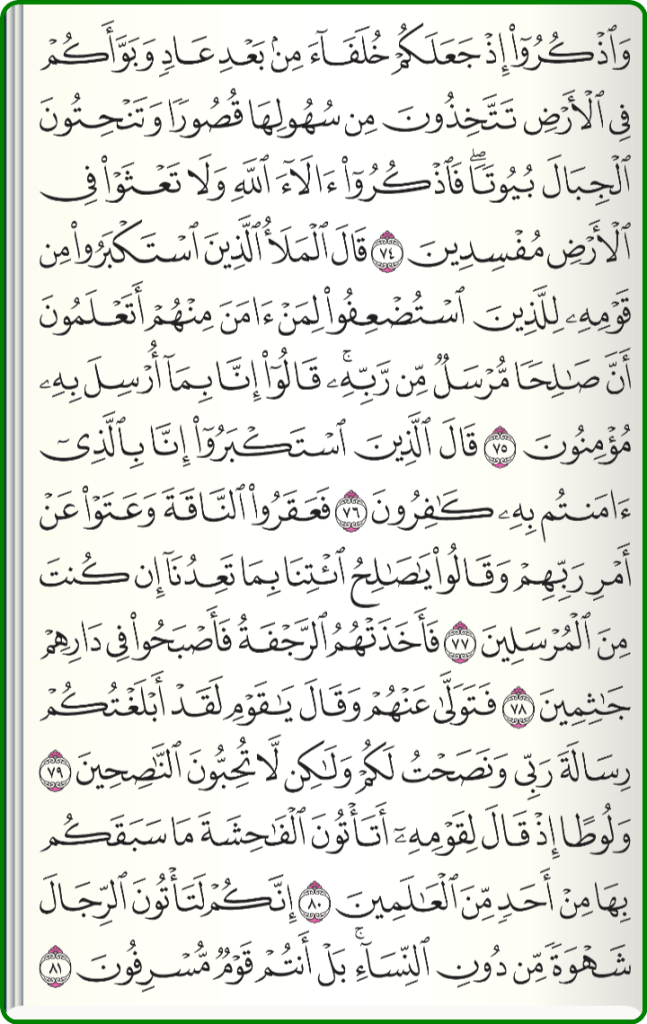 وَٱذۡكُرُوٓاْ إِذۡ جَعَلَكُمۡ خُلَفَآءَ مِنۢ بَعۡدِ عَادٖ وَبَوَّأَكُمۡ
فِي ٱلۡأَرۡضِ تَتَّخِذُونَ مِن سُهُولِهَا قُصُورٗا وَتَنۡحِتُونَ
ٱلۡجِبَالَ بُيُوتٗاۖ فَٱذۡكُرُوٓاْ ءَالَآءَ ٱللَّهِ وَلَا تَعۡثَوۡاْ فِي
ٱلۡأَرۡضِ مُفۡسِدِينَ ٧٤ قَالَ ٱلۡمَلَأُ ٱلَّذِينَ ٱسۡتَكۡبَرُواْ مِن
قَوۡمِهِۦ لِلَّذِينَ ٱسۡتُضۡعِفُواْ لِمَنۡ ءَامَنَ مِنۡهُمۡ أَتَعۡلَمُونَ
أَنَّ صَٰلِحٗا مُّرۡسَلٞ مِّن رَّبِّهِۦۚ قَالُوٓاْ إِنَّا بِمَآ أُرۡسِلَ بِهِۦ
مُؤۡمِنُونَ ٧٥ قَالَ ٱلَّذِينَ ٱسۡتَكۡبَرُوٓاْ إِنَّا بِٱلَّذِيٓ
ءَامَنتُم بِهِۦ كَٰفِرُونَ ٧٦ فَعَقَرُواْ ٱلنَّاقَةَ وَعَتَوۡاْ عَنۡ
أَمۡرِ رَبِّهِمۡ وَقَالُواْ يَٰصَٰلِحُ ٱئۡتِنَا بِمَا تَعِدُنَآ إِن كُنتَ
مِنَ ٱلۡمُرۡسَلِينَ ٧٧ فَأَخَذَتۡهُمُ ٱلرَّجۡفَةُ فَأَصۡبَحُواْ فِي دَارِهِمۡ
جَٰثِمِينَ ٧٨ فَتَوَلَّىٰ عَنۡهُمۡ وَقَالَ يَٰقَوۡمِ لَقَدۡ أَبۡلَغۡتُكُمۡ
رِسَالَةَ رَبِّي وَنَصَحۡتُ لَكُمۡ وَلَٰكِن لَّا تُحِبُّونَ ٱلنَّٰصِحِينَ ٧٩
وَلُوطًا إِذۡ قَالَ لِقَوۡمِهِۦٓ أَتَأۡتُونَ ٱلۡفَٰحِشَةَ مَا سَبَقَكُم
بِهَا مِنۡ أَحَدٖ مِّنَ ٱلۡعَٰلَمِينَ ٨٠ إِنَّكُمۡ لَتَأۡتُونَ ٱلرِّجَالَ
شَهۡوَةٗ مِّن دُونِ ٱلنِّسَآءِۚ بَلۡ أَنتُمۡ قَوۡمٞ مُّسۡرِفُونَ ٨١